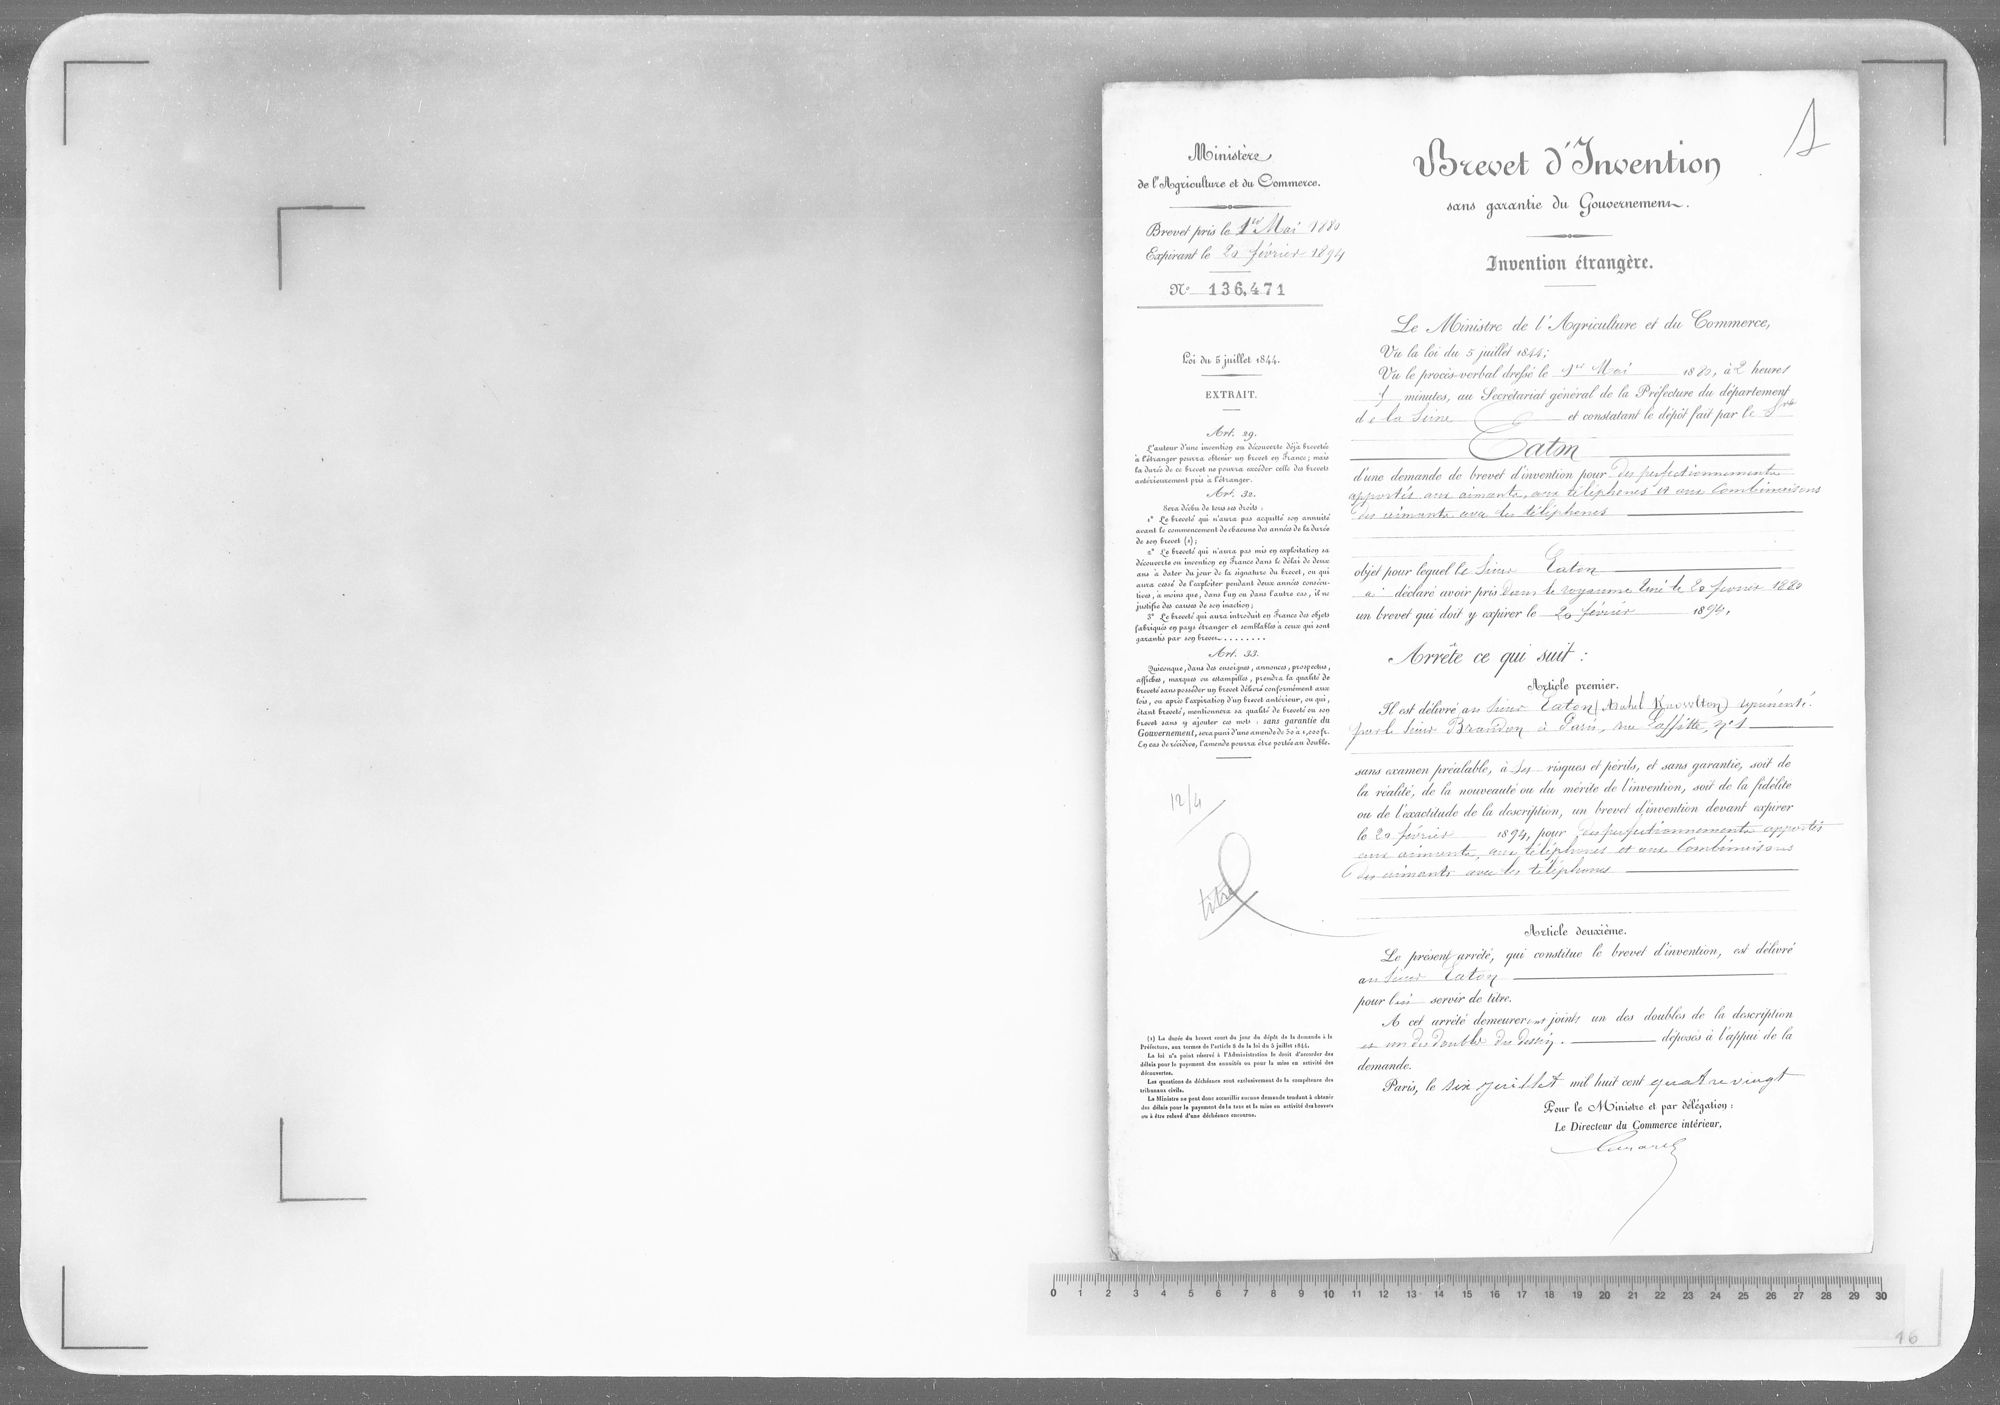 Ministère
de l'Agriculture et du Commerce.
Brevet pris le 1er Mai 1880
Expirant le 20 février 1894
No 136,471
Loi du 5 juillet 1844.
EXTRAIT.
Art. 29.
L'auteur d'une invention ou découverte déjà brevetée
à l'étranger pourra obtenir un brevet en France; mais
la durée de ce brevet ne pourra excéder celle des brevets
antérieurement pris à l'étranger.
Art. 32.
Sera déchu de tous ses droits :
1° Le breveté qui n'aura pas acquitté son annuité
avant le commencement de chacune des années de la durée
de son brevet (1);
2° Le breveté qui n'aura pas mis en exploitation sa
découverte ou invention en France dans le délai de deux
ans à dater du jour de la signature du brevet, ou qui
aura cessé de l'exploiter pendant deux années consécu-
tives, à moins que, dans l'un ou dans l'autre cas, il ne
justifie des causes de son inaction;
3° Le breveté qui aura introduit en France des objets
fabriqués en pays étranger et semblables à ceux qui sont
garantis par son brevet........
Art. 33.
Quiconque, dans des enseignes, annonces, prospectus,
affiches, marques ou estampilles, prendra la qualité de
breveté sans posséder un brevet délivré conformément aux
lois, ou après l'expiration d'un brevet antérieur, ou qui,
étant breveté, mentionnera sa qualité de breveté ou son
brevet sans y ajouter ces mots : sans garantie du
Gouvernement, sera puni d'une amende de 50 à 1,000 fr.
En cas de récidive, l'amende pourra être portée au double.
12/4
titre
(1) La durée du brevet court du jour du dépôt de la demande à la
Préfecture, aux termes de l'article 8 de la loi du 5 juillet 1844.
La loi n'a point réservé à l'Administration le droit d'accorder des
délais pour le payement des annuités ou pour la mise en activité des
découvertes.
Les questions de déchéance sont exclusivement de la compétence des
tribunaux civils.
Le Ministre ne peut donc accueillir aucune demande tendant à obtenir
des délais pour le payement de la taxe et la mise en activité des brevets
ou à être relevé d'une déchéance encourue.
1
Brevet d'Invention
sans garantie du Gouvernement.
Invention étrangère.
Le Ministre de l'Agriculture et du Commerce,
Vu la loi du 5 juillet 1844;
Vu le procès-verbal dressé le 1er Mai 1880, à 2 heures
5 minutes, au Secrétariat général de la Préfecture du département
de la Seine et constatant le dépôt fait par le Sr
Eaton
d'une demande de brevet d'invention pour des perfectionnements
apportés aux aimants, aux téléphones et aux combinaisons
des aimants avec les téléphones
objet pour lequel le Sieur Eaton
a déclaré avoir pris dans le royaume Uni le 20 février 1880
un brevet qui doit y expirer le 20 février 1894,
Arrête ce qui suit :
Article premier.
Il est délivré au Sieur Eaton (Asahel Knowlton) représenté
par le Sieur Brandon à Paris, rue Laffitte, no 1
sans examen préalable, à ses risques et périls, et sans garantie, soit de
la réalité, de la nouveauté ou du mérite de l'invention, soit de la fidélité
ou de l'exactitude de la description, un brevet d'invention devant expirer
le 20 février 1894, pour des perfectionnements apportés
aux aimants, aux téléphones et aux combinaisons
des aimants avec les téléphones
Article deuxième.
Le présent arrêté, qui constitue le brevet d'invention, est délivré
au Sieur Eaton
pour lui servir de titre.
A cet arrêté demeureront joints un des doubles de la description
et un des doubles du dessin. déposés à l'appui de la
demande.
Paris, le six juillet mil huit cent quatre vingt
Pour le Ministre et par délégation :
Le Directeur du Commerce intérieur,
0 1 2 3 4 5 6 7 8 9 10 11 12 13 14 15 16 17 18 19 20 21 22 23 24 25 26 27 28 29 30
16